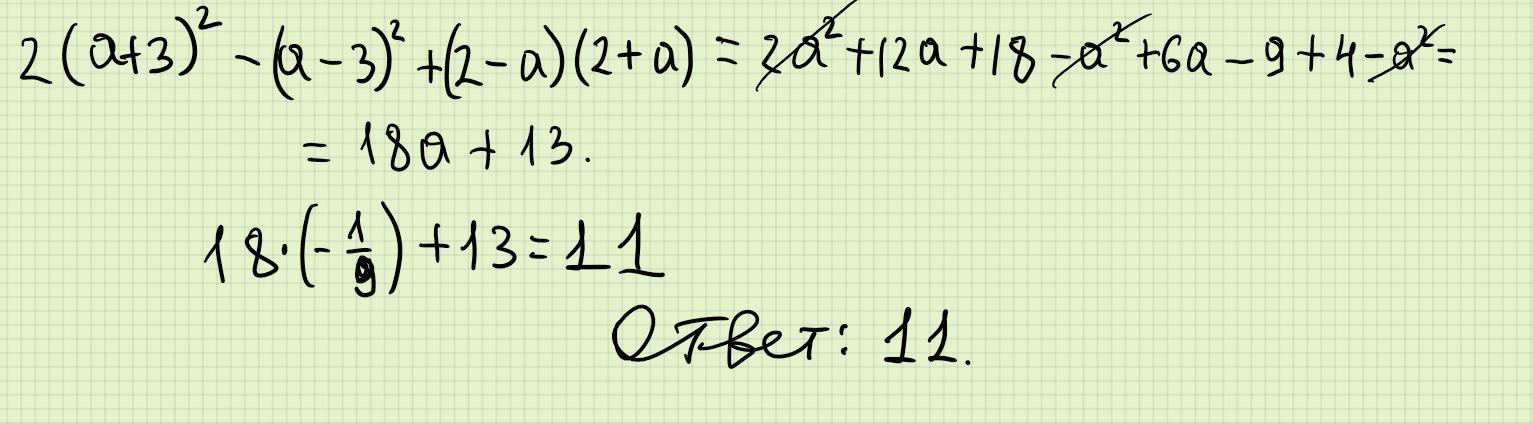 2(a+3)² - (a-3)² + (2-a)(2+a) = 2a² + 12a + 18 - a² + 6a - 9 + 4 - a² =
= 18a + 13.
18·(-1/9) + 13 = 11
Ответ: 11.